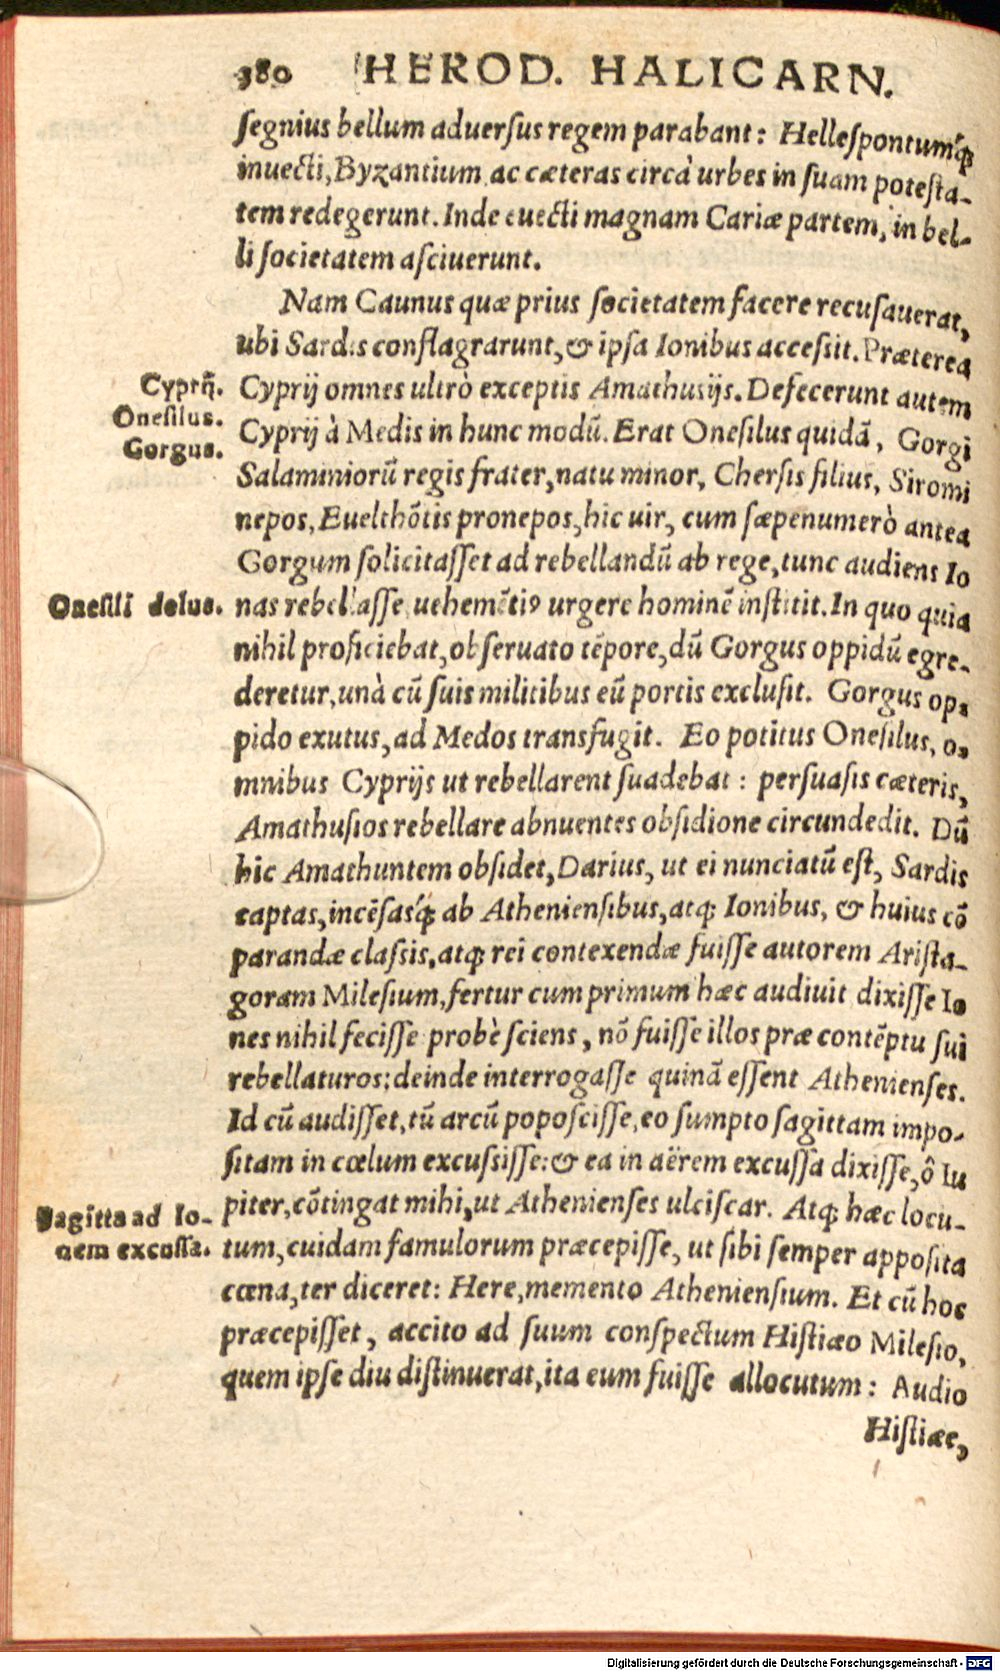 380 HEROD. HALICARN.
ſegnius bellum aduerſus regem parabant: Helleſpontumq́ꝫ
inuecti, Byzantium ac cæteras circà urbes in ſuam poteſta-
tem redegerunt. Inde euecti magnam Cariæ partem, in bel-
li ſocietatem aſciuerunt.
Nam Caunus quæ prius ſocietatem facere recuſauerat,
ubi Sardis conflagrarunt, & ipſa Ionibus acceſsit. Præterea
Cyprij.
Cyprij omnes ultrò exceptis Amathusijs. Defecerunt autem
Oneſilus.
Cyprij à Medis in hunc modū. Erat Oneſilus quidā, Gorgi
Gorgus.
Salaminiorū regis frater, natu minor, Cherſis filius, Siromi
nepos, Euelthōtis pronepos, hic uir, cum ſæpenumerò antea
Gorgum ſolicitaſſet ad rebellandū ab rege, tunc audiens Io
Oneſili dolus.
nas rebellaſſe uehemētiꝰ urgere hominē inſtitit. In quo quia
nihil proficiebat, obſeruato tēpore, dū Gorgus oppidū egre-
deretur, unà cū ſuis militibus eū portis excluſit. Gorgus op-
pido exutus, ad Medos transfugit. Eo potitus Oneſilus, o-
mnibus Cyprijs ut rebellarent ſuadebat: perſuaſis cæteris,
Amathuſios rebellare abnuentes obſidione circundedit. Dū
hic Amathuntem obſidet, Darius, ut ei nunciatū eſt, Sardis
captas, incēſasq́ꝫ ab Athenienſibus, atqꝫ Ionibus, & huius cō
parandæ claſsis, atqꝫ rei contexendæ fuiſſe autorem Ariſta-
goram Mileſium, fertur cum primum hæc audiuit dixiſſe Io
nes nihil feciſſe probè ſciens, nō fuiſſe illos præ contēptu ſui
rebellaturos: deinde interrogaſſe quinā eſſent Athenienſes.
Id cū audiſſet, tū arcū popoſciſſe, eo ſumpto ſagittam impo-
ſitam in cœlum excuſsiſſe: & ea in aërem excuſſa dixiſſe, ô Iu
Sagitta ad Io-
piter, cōtingat mihi, ut Athenienſes ulciſcar. Atqꝫ hæc locu-
uem excuſſa.
tum, cuidam famulorum præcepiſſe, ut ſibi ſemper appoſita
cœna, ter diceret: Here, memento Athenienſium. Et cū hoc
præcepiſſet, accito ad ſuum conſpectum Hiſtiæo Mileſio,
quem ipſe diu diſtinuerat, ita eum fuiſſe allocutum: Audio
Hiſtiæe,
Digitalisierung gefördert durch die Deutsche Forschungsgemeinschaft - DFG